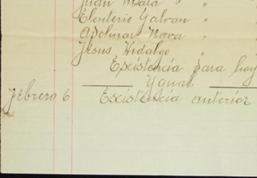 Juan Mata "
Elenterio Galvan "
Apolinar Mora "
Jesus Hidalgo "
Existencia para hoy
Ygual
Febrero 6 Existencia anterior